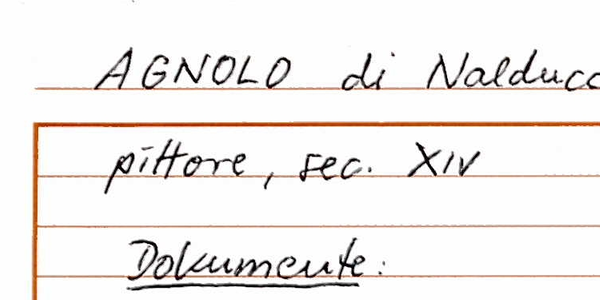 AGNOLO di Nalducc
pittore, sec. XIV
Dokumente: